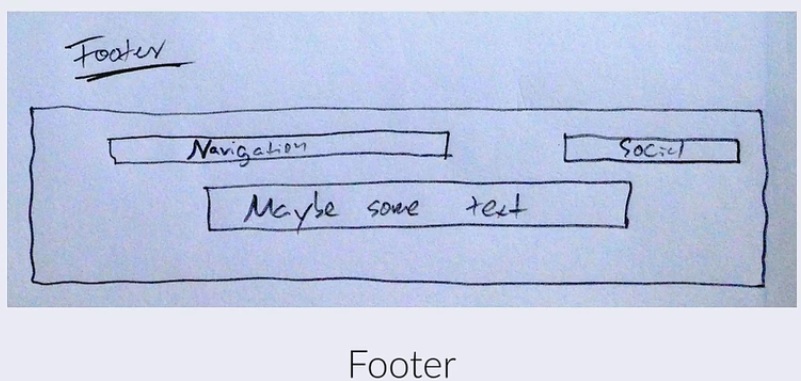 Footer
Navigation Social
Maybe some text
Footer